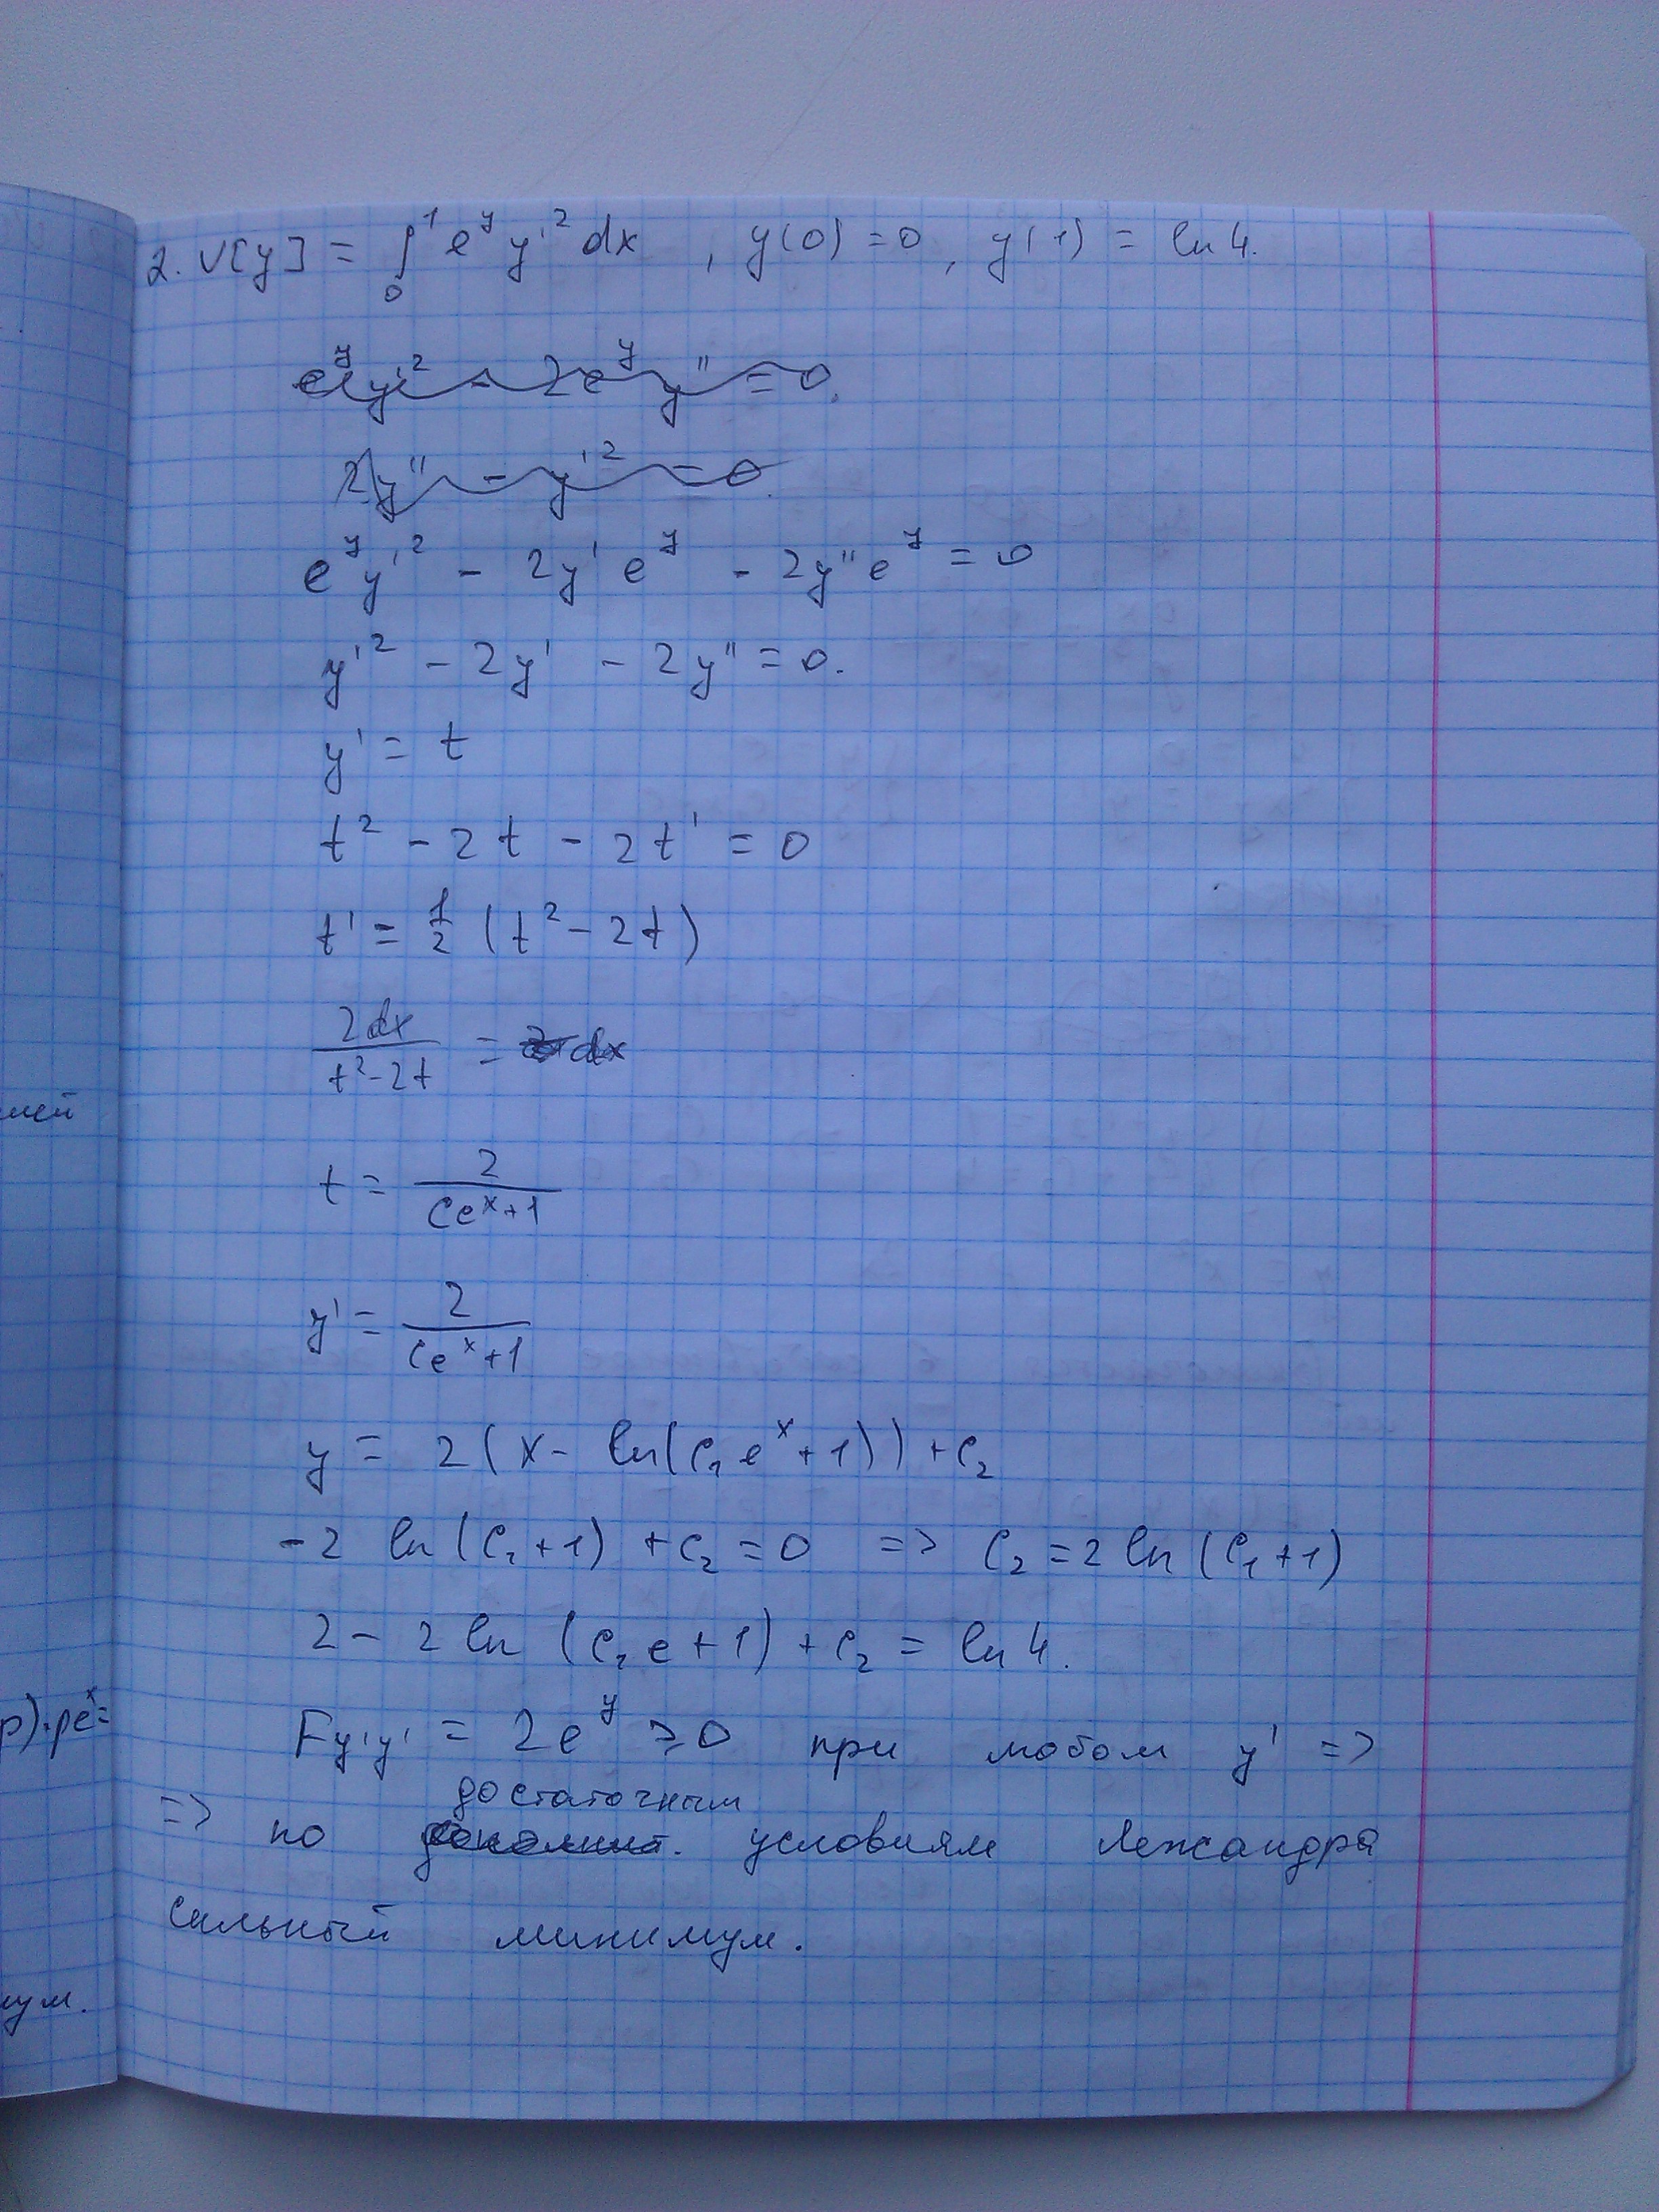 2. V[y] = ∫₀¹ e^y y'² dx , y(0) = 0 , y(1) = ln 4.
e^y y'² - 2e^y y'' = 0.
2y'' - y'² = 0.
e^y y'² - 2y' e^y - 2y'' e^y = 0
y'² - 2y' - 2y'' = 0.
y' = t
t² - 2t - 2t' = 0
t' = 1/2 (t² - 2t)
2dx/(t² - 2t) = dx
t = 2/(Ce^x + 1)
y' = 2/(Ce^x + 1)
y = 2(x - ln(C₁e^x + 1)) + C₂
-2 ln(C₁ + 1) + C₂ = 0 => C₂ = 2 ln(C₁ + 1)
2 - 2 ln(C₁e + 1) + C₂ = ln 4.
F_y'y' = 2e^y ≥ 0 при любом y' =>
достаточным
=> по условиям Лежандра
сильный минимум.
шей
p)·pe^x =
ум.